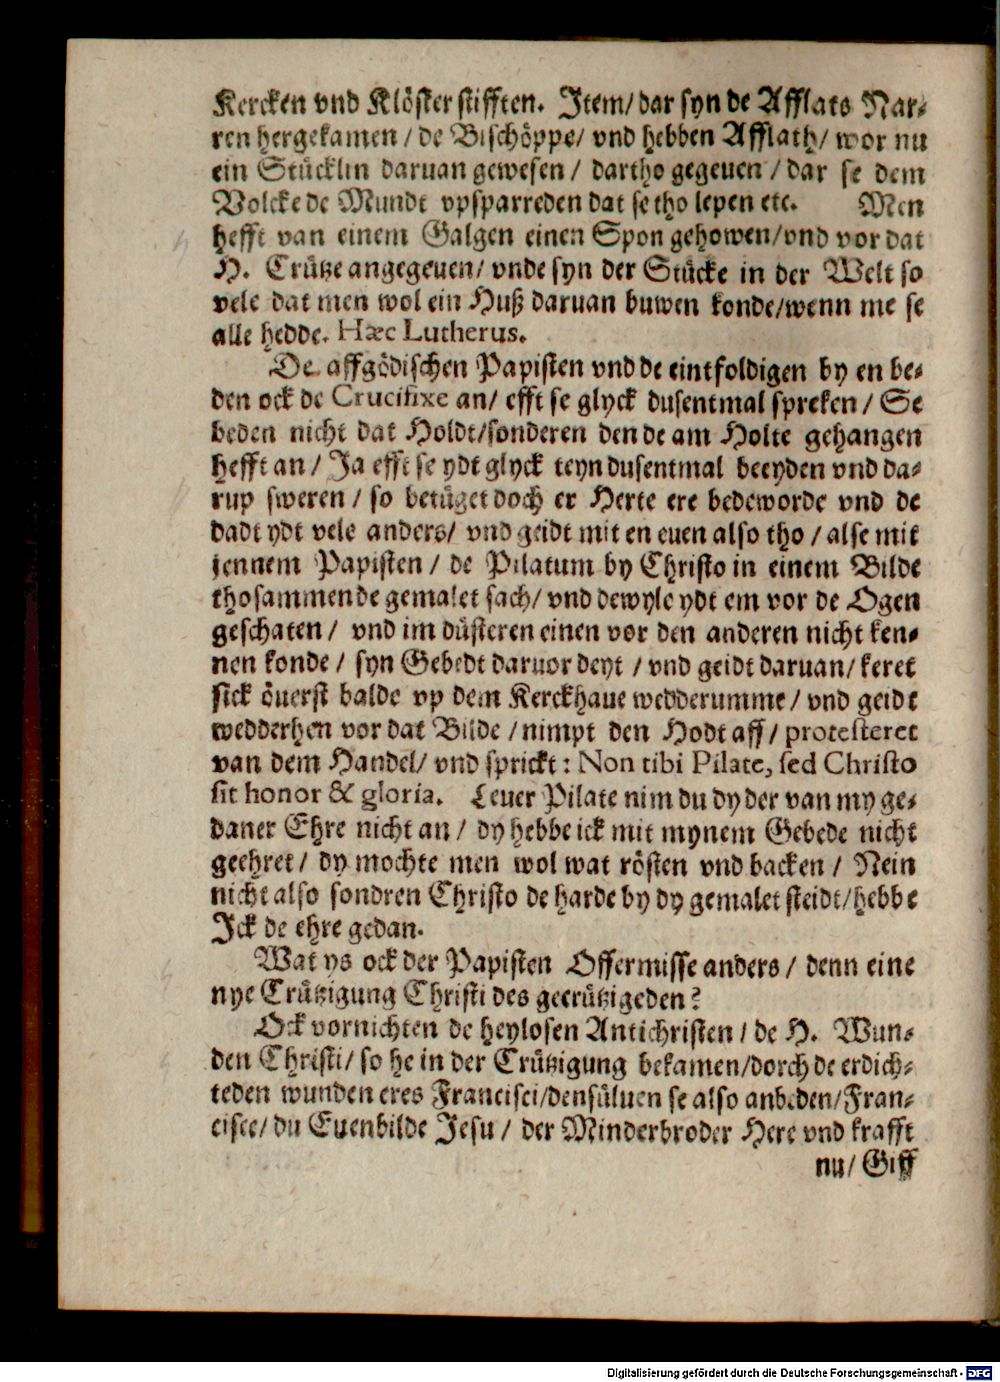 Kercken vnd Klöster stifften. Item/ dar syn de Afflats Nar-
ren hergekamen / de Bischöppe/ vnd hebben Afflath/ wor nu
ein Stücklin daruan gewesen / dartho gegeuen / dar se dem
Volcke de Mundt vpsparreden dat se tho lepen etc. Men
hefft van einem Galgen einen Spon gehowen/ vnd vor dat
H. Crütze angegeuen/ vnde syn der Stücke in der Welt so
vele dat men wol ein Huß daruan buwen konde/ wenn me se
alle hedde. Hæc Lutherus.
De affgödischen Papisten vnd de eintfoldigen by en be-
den ock de Crucifixe an/ efft se glyck dusentmal spreken / Se
beden nicht dat Holdt/ sonderen den de am Holte gehangen
hefft an / Ja efft se ydt glyck teyn dusentmal beeyden vnd da-
rup sweren / so betüget doch er Herte ere bedeworde vnd de
dadt ydt vele anders/ vnd geidt mit en euen also tho / alse mit
jennem Papisten / de Pilatum by Christo in einem Bilde
thosammende gemalet sach/ vnd dewyle ydt em vor de Ogen
geschaten / vnd im düsteren einen vor den anderen nicht ken-
nen konde / syn Gebedt daruor deyt / vnd geidt daruan/ keret
sick öuerst balde vp dem Kerckhaue wedderumme / vnd geidt
wedderhen vor dat Bilde / nimpt den Hodt aff / protesteret
van dem Handel/ vnd sprickt: Non tibi Pilate, sed Christo
sit honor & gloria. Leuer Pilate nim du dy der van my ge-
daner Ehre nicht an / dy hebbe ick mit mynem Gebede nicht
geehret / dy mochte men wol wat rösten vnd backen / Nein
nicht also sondren Christo de harde by dy gemalet steidt/ hebbe
Ick de ehre gedan.
Wat ys ock der Papisten Offermisse anders / denn eine
nye Crützigung Christi des gecrützigeden?
Ock vornichten de heylosen Antichristen / de H. Wun-
den Christi/ so he in der Crützigung bekamen/ dorch de erdich-
teden wunden eres Francisci/ densüluen se also anbeden/ Fran-
cisce/ du Euenbilde Jesu / der Minderbroder Here vnd krafft
nu/ Giff
Digitalisierung gefördert durch die Deutsche Forschungsgemeinschaft - DFG